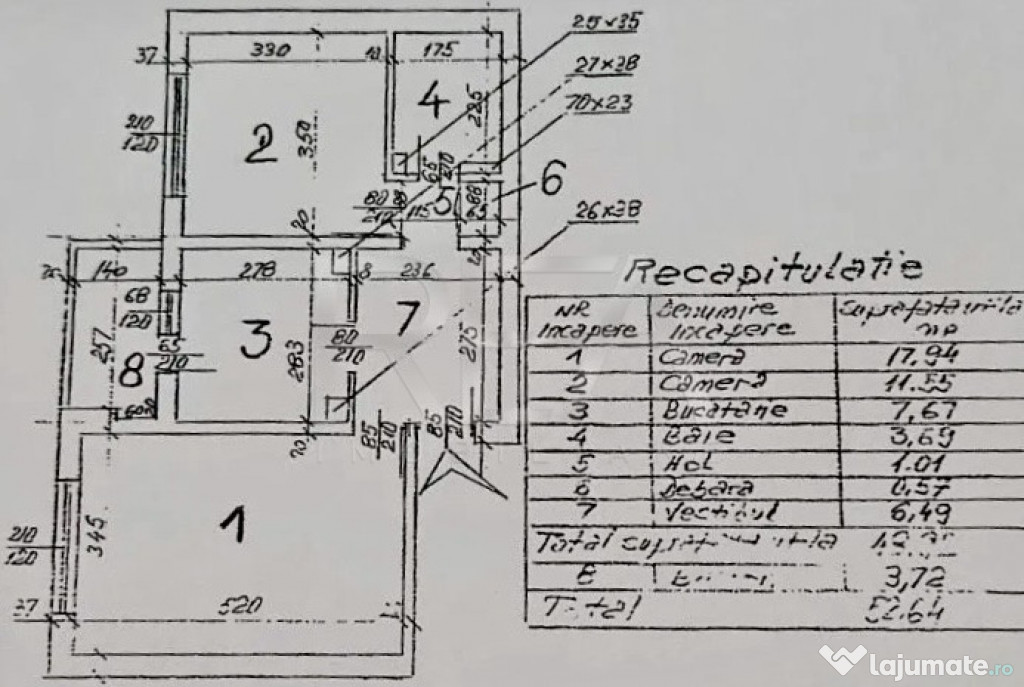 25×35
37 330 10 175
27×38
70×23
4
225
210
120
2
350
65
210
6
80
210
88
115
5
88
26×38
20
140 278 8 236
Recapitulatie
NR
Incapere
Denumire
Incapere
Suprafata utila
mp
1 Camera 17.94
2 Camera 11.55
3 Bucatarie 7,67
4 Baie 3,69
5 Hol 1.01
6 Debara 0,57
7 Vestibul 6,49
Total suprafata utila
8 3,72
Total 52.64
68
120
257
65
210
8
3
283
80
210
7
275
60
20
85
210
85
210
1
345
210
120
37 520
lajumate.ro